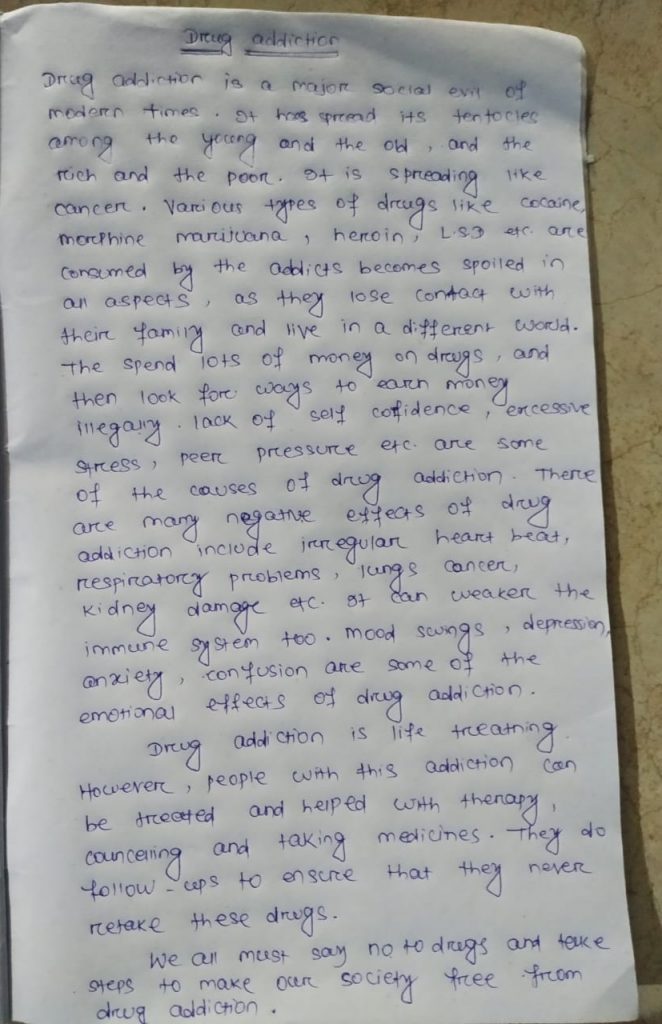 Drug addiction
Drug addiction is a major social evil of
modern times. It has spread its tentocles
among the young and the old, and the
rich and the poor. It is spreading like
cancer. Various types of drugs like cocaine,
morphine marijuana, heroin, L.S.D etc. are
consumed by the addicts becomes spoiled in
all aspects, as they lose contact with
their family and live in a different world.
The spend lots of money on drugs, and
then look for ways to earn money
illegally. lack of self cofidence, excessive
stress, peer pressure etc. are some
of the causes of drug addiction. There
are many negative effects of drug
addiction include irregular heart beat,
respiratory problems, lungs cancer,
kidney damage etc. It can weaken the
immune system too. mood swings, depression,
anxiety, confusion are some of the
emotional effects of drug addiction.
Drug addiction is life treatning.
However, people with this addiction can
be treeted and helped with therapy,
councelling and taking medicines. They do
follow-ups to ensure that they never
retake these drugs.
We all must say no to drugs and take
steps to make our society free from
drug addiction.